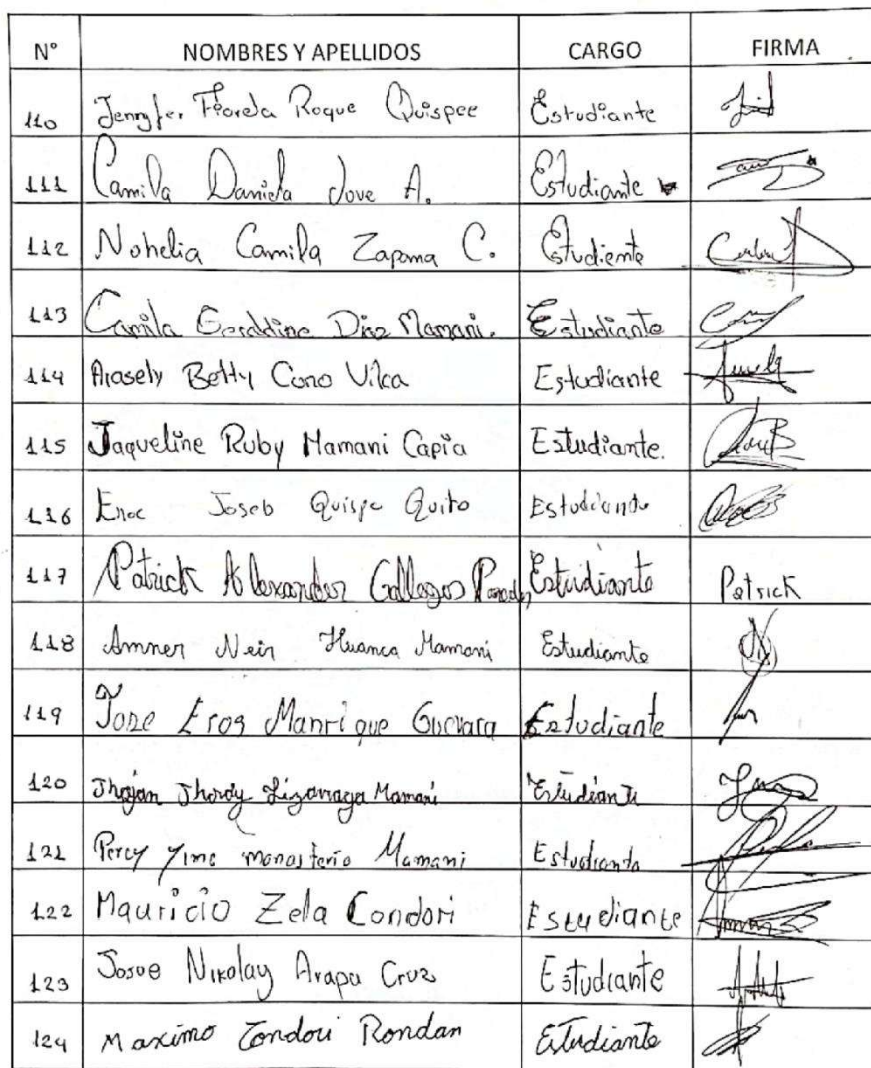 N° NOMBRES Y APELLIDOS CARGO FIRMA
110 Jennyfer Fiorela Roque Quispee Estudiante
111 Camila Daniela Jove A. Estudiante
112 Nohelia Camila Zapana C. Estudiente
113 Camila Geraldine Diaz Mamani. Estudiante
114 Arasely Betty Cano Vilca Estudiante
115 Jaqueline Ruby Mamani Capia Estudiante.
116 Enoc Joseb Quispe Quito Estudiante
117 Patrick Alexander Gallegos Estudiante Patrick
118 Amner Neir Huanca Mamani Estudiante
119 Jose Eros Manrique Guevara Estudiante
120 Jhojan Jhordy Lizarraga Mamani Estudiante
121 Percy Yime monasterio Mamani Estudiante
122 Mauricio Zela Condori Estudiante
123 Josue Nikolay Arapa Cruz Estudiante
124 Maximo Condori Rondan Estudiante